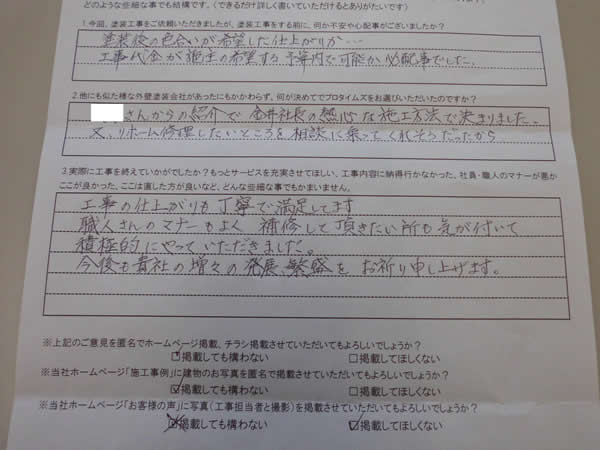 どのような些細な事でも結構です。(できるだけ詳しく書いていただけるとありがたいです)
1.今回、塗装工事をご依頼いただきましたが、塗装工事をする前に、何か不安や心配事がございましたか?
塗装後の色合いが希望した仕上がりか…
工事代金が施主の希望する予算内で可能か心配事でした。
2.他にも似た様な外壁塗装会社があったにもかかわらず、何が決めてでプロタイムズをお選びいただいたのですか?
さんからの紹介で金井社長の熱心な施工方法で決まりました。
又、リホーム修理したいところを相談に乗ってくれそうだったから
3.実際に工事を終えていかがでしたか?もっとサービスを充実させてほしい、工事内容に納得行かなかった、社員・職人のマナーが悪か
ここが良かった、ここは直した方が良いなど、どんな些細な事でもかまいません。
工事の仕上がりも丁寧で満足してます
職人さんのマナーもよく 補修して頂きたい所も気が付いて
積極的にやっていただきました。
今後も貴社の増々の発展 繁盛を お祈り申し上げます。
※上記のご意見を匿名でホームページ掲載、チラシ掲載させていただいてもよろしいでしょうか?
掲載しても構わない 掲載してほしくない
※当社ホームページ「施工事例」に建物のお写真を匿名で掲載させていただいてもよろしいでしょうか?
掲載しても構わない 掲載してほしくない
※当社ホームページ「お客様の声」に写真(工事担当者と撮影)を掲載させていただいてもよろしいでしょうか?
掲載しても構わない 掲載してほしくない